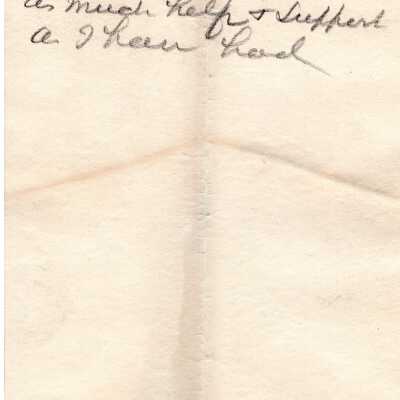 as much help + support
as I have had